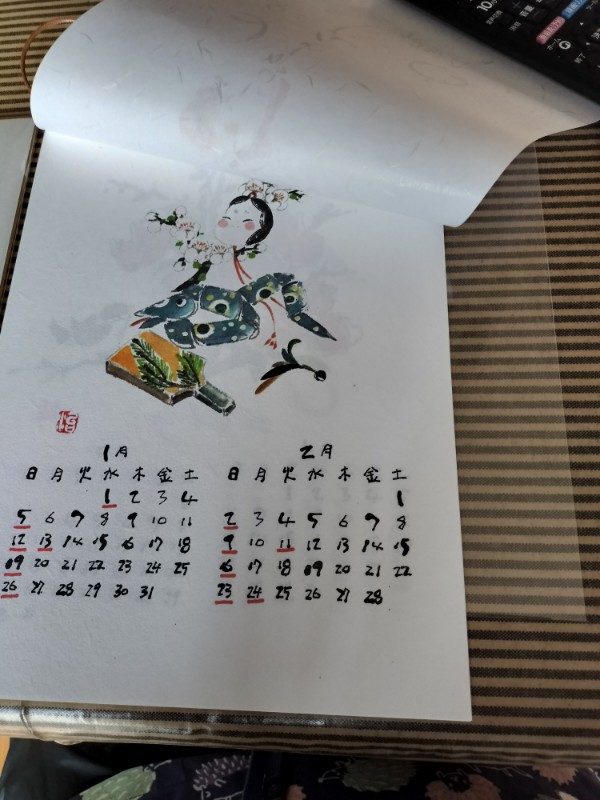 1月
日 月 火 水 木 金 土
1 2 3 4
5 6 7 8 9 10 11
12 13 14 15 16 17 18
19 20 21 22 23 24 25
26 27 28 29 30 31
2月
日 月 火 水 木 金 土
1
2 3 4 5 6 7 8
9 10 11 12 13 14 15
16 17 18 19 20 21 22
23 24 25 26 27 28